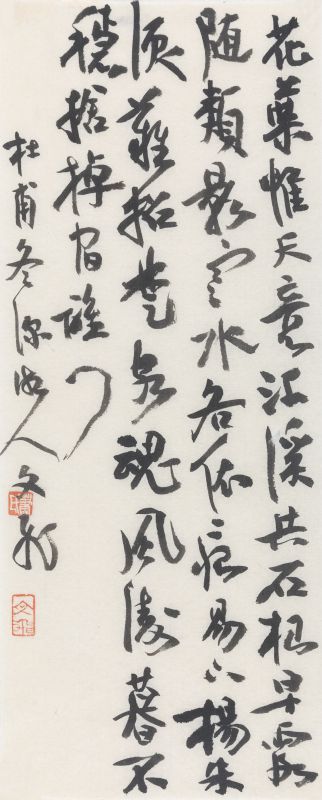 花葉惟天意江溪共石根早霞
随類影寒水各依痕易下楊朱
淚難招楚客魂風濤暮不
穩捨棹宿誰門
杜甫冬深